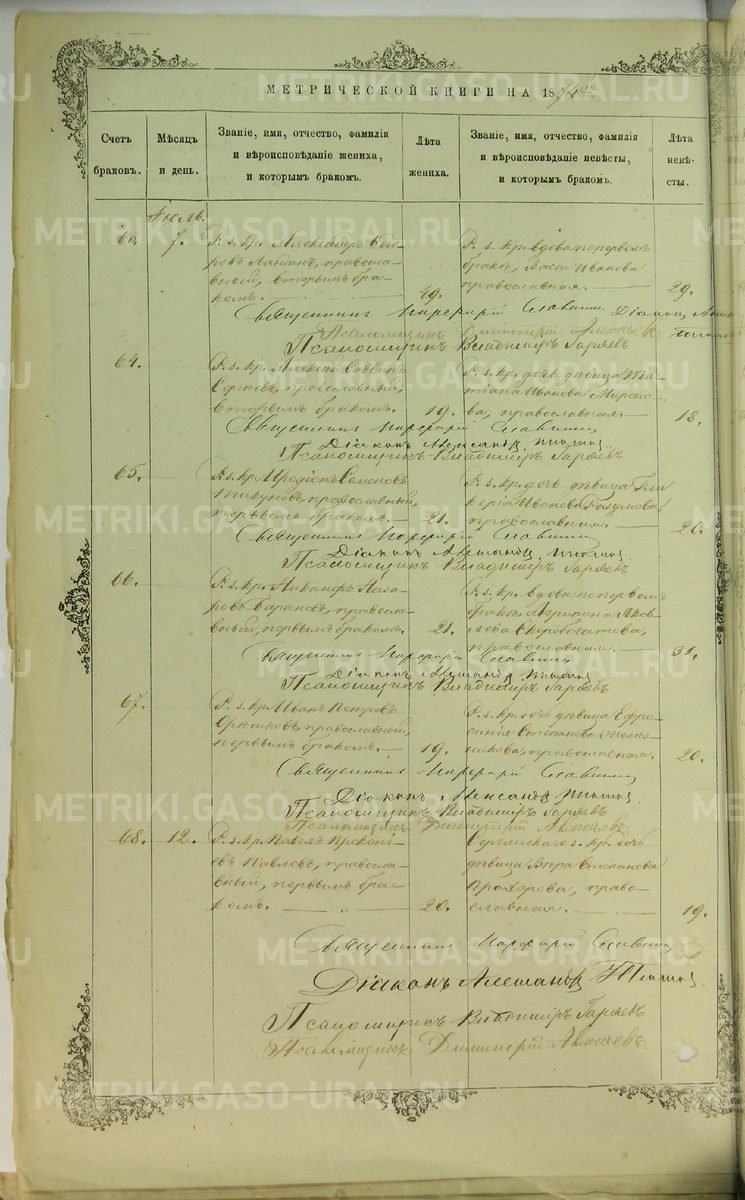 МЕТРИЧЕСКОЙ КНИГИ НА 1874
Счетъ браковъ.
Мѣсяцъ и день.
Званіе, имя, отчество, фамилія и вѣроисповѣданіе жениха, и которымъ бракомъ.
Лѣта жениха.
Званіе, имя, отчество, фамилія и вѣроисповѣданіе невѣсты, и которымъ бракомъ.
Лѣта невѣсты.
Іюль.
63. 7. Р. з. кр. Александръ Ѳедо-
ровъ православ-
ный, вторымъ бра-
комъ. 49.
Р. з. кр. вдова по первомъ
бракѣ, Васса Иванова
православная. 29.
Священникъ Порфирій Славнинъ Діаконъ
Псаломщикъ Димитрій
Псаломщикъ Владиміръ Гаряевъ
64. Р. з. кр. Алексѣй Саввинъ
Сергѣевъ, православный,
вторымъ бракомъ. 19.
Р. з. кр. дочь дѣвица Та-
тіана Иванова Мироно-
ва, православная. 18.
Священникъ Порфирій Славнинъ
Діаконъ Александръ
Псаломщикъ Владиміръ Гаряевъ
65. Р. з. кр. Иродіонъ Семеновъ
православный,
первымъ бракомъ. 21.
Р. з. кр. дочь дѣвица Гли-
керія Иванова
православная. 20.
Священникъ Порфирій Славнинъ
Діаконъ Александръ
Псаломщикъ Владиміръ Гаряевъ
66. Р. з. кр. Никаноръ Наза-
ровъ Барановъ, правосла-
вный, первымъ бракомъ. 21.
Р. з. кр. вдова по первомъ
бракѣ Агрипина Яков-
лева Скоробогатова,
православная. 31.
Священникъ Порфирій Славнинъ
Діаконъ Александръ
Псаломщикъ Владиміръ Гаряевъ
67. Р. з. кр. Иванъ Петровъ
православный,
первымъ бракомъ. 19.
Р. з. кр. дочь дѣвица Ефро-
синія Степанова
православная. 20.
Священникъ Порфирій Славнинъ
Діаконъ Александръ
Псаломщикъ Владиміръ Гаряевъ
Псаломщикъ Димитрій
68. 12. Р. з. кр. Павелъ Прокопь-
евъ Павловъ, правосла-
вный, первымъ бра-
комъ. 20.
Сергинскаго з. кр. дочь
дѣвица Вѣра Степанова
Прохорова, право-
славная. 19.
Священникъ Порфирій Славнинъ
Діаконъ Александръ
Псаломщикъ Владиміръ Гаряевъ
Псаломщикъ Димитрій
METRIKI.GASO-URAL.RU